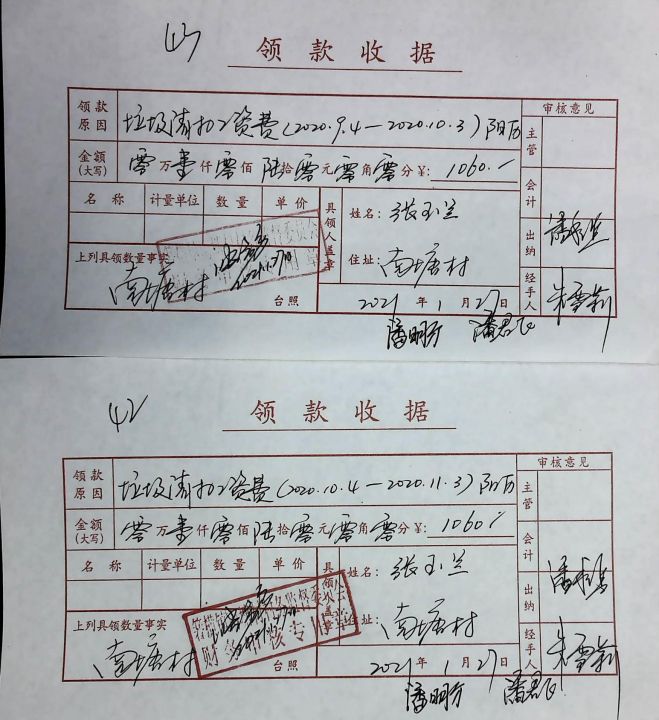 43
领款收据
领款原因 垃圾清扫工资费(2020.9.4—2020.10.3)阳历 审核意见
主管
金额(大写) 零万壹仟零佰陆拾零元零角零分 ¥: 1060.-
会计
名称 计量单位 数量 单价 具领人盖章 姓名: 张玉兰
出纳
住址: 南塘村
上列具领数量事实
南塘村 台照 2021年1月27日 经手人 朱雪莉
潘明方 潘君飞
42
领款收据
领款原因 垃圾清扫工资费(2020.10.4—2020.11.3)阳历 审核意见
主管
金额(大写) 零万壹仟零佰陆拾零元零角零分 ¥: 1060.-
会计
名称 计量单位 数量 单价 具领人盖章 姓名: 张玉兰
出纳
住址: 南塘村
上列具领数量事实
南塘村 台照 2021年1月27日 经手人 朱雪莉
潘明方 潘君飞